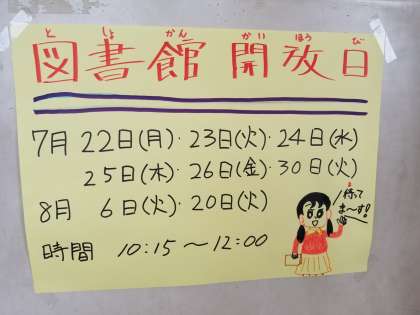 と しょ かん かい ほう び
図書館 開放日
7月 22日(月)・23日(火)・24日(水)
25日(木)・26日(金)・30日(火)
8月 6日(火)・20日(火)
時間 10:15〜12:00
待って
ま〜す!